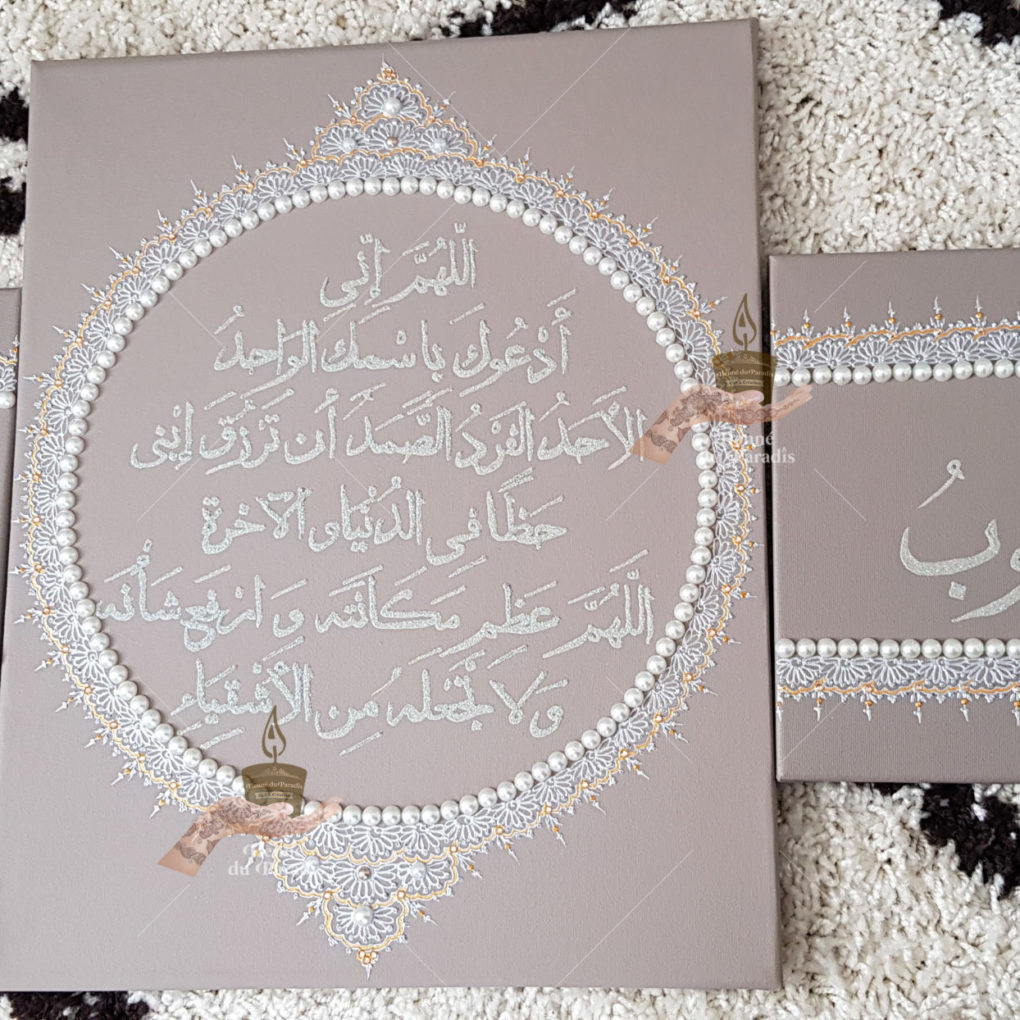 اللّهُمَّ إنّي
أَدْعُوكَ بِاسْمِكَ الوَاحِدُ
الأَحَدُ الفَرْدُ الصَّمَدُ أَن تَرْزُقَ إِبْنِي
حَظًّا فِي الدُنْيَا وِ الآخِرَة
اللَّهُمَّ عَظِّمِ مَكَانَتَه وَ ارْفَعِ شَأْنَه
وَلَا تَجْعَلْهُ مِنَ الأَشْقِيَاءِ
وبُ
Henné du Paradis
Henné du Paradis
du Paradis